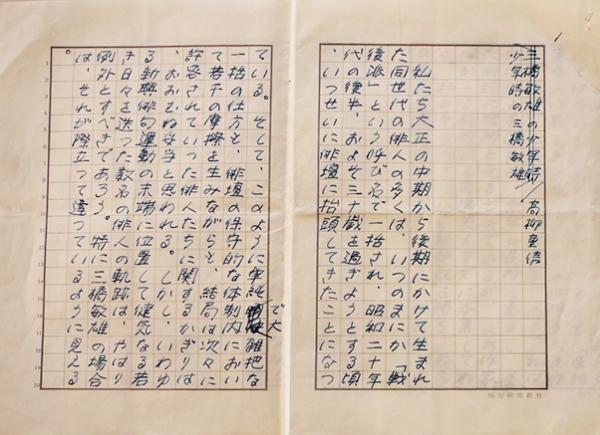 三橋敏雄の少年時 高柳重信
少年時の三橋敏雄
私たち大正の中期から後期にかけて生まれ
た同世代の俳人の多くは、いつのまにか「戦
後派」という呼び名で一括され、昭和二十年
代の後半、およそ三十歳を過ぎようとする頃
、いっせいに俳壇に抬頭してきたことになっ
ている。そして、このように単純で大雑把な
一括の仕方も、俳壇の保守的な体制内におい
て若干の摩擦を生みながらも、結局は次々に
許容されていった俳人たちに関するかぎりは
、おおむね妥当と思われる。しかし、いわゆ
る新興俳句運動の末端に位置して健気なる若
き日々を送った数名の俳人の軌跡は、やはり
例外とすべきであろう。特に三橋敏雄の場合
は、それが際立って違っているように見える
。
俳句研究新社